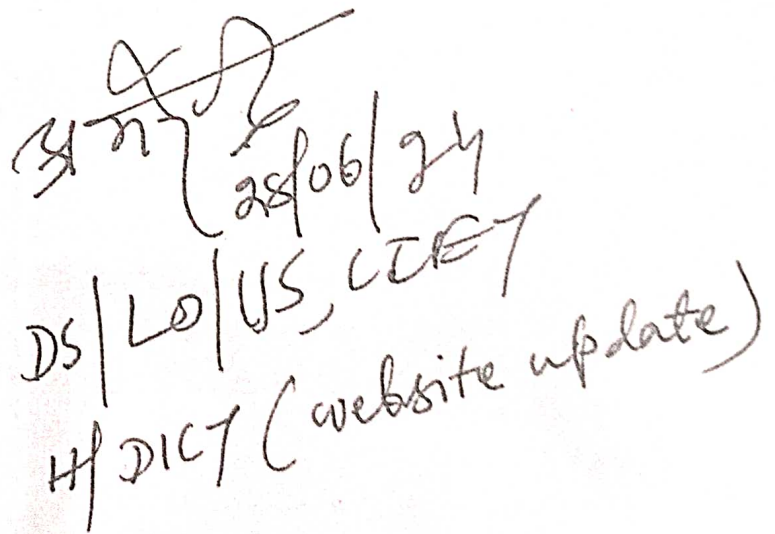 28/06/24
DS/LO/US, CIET
H/DICT (website update)